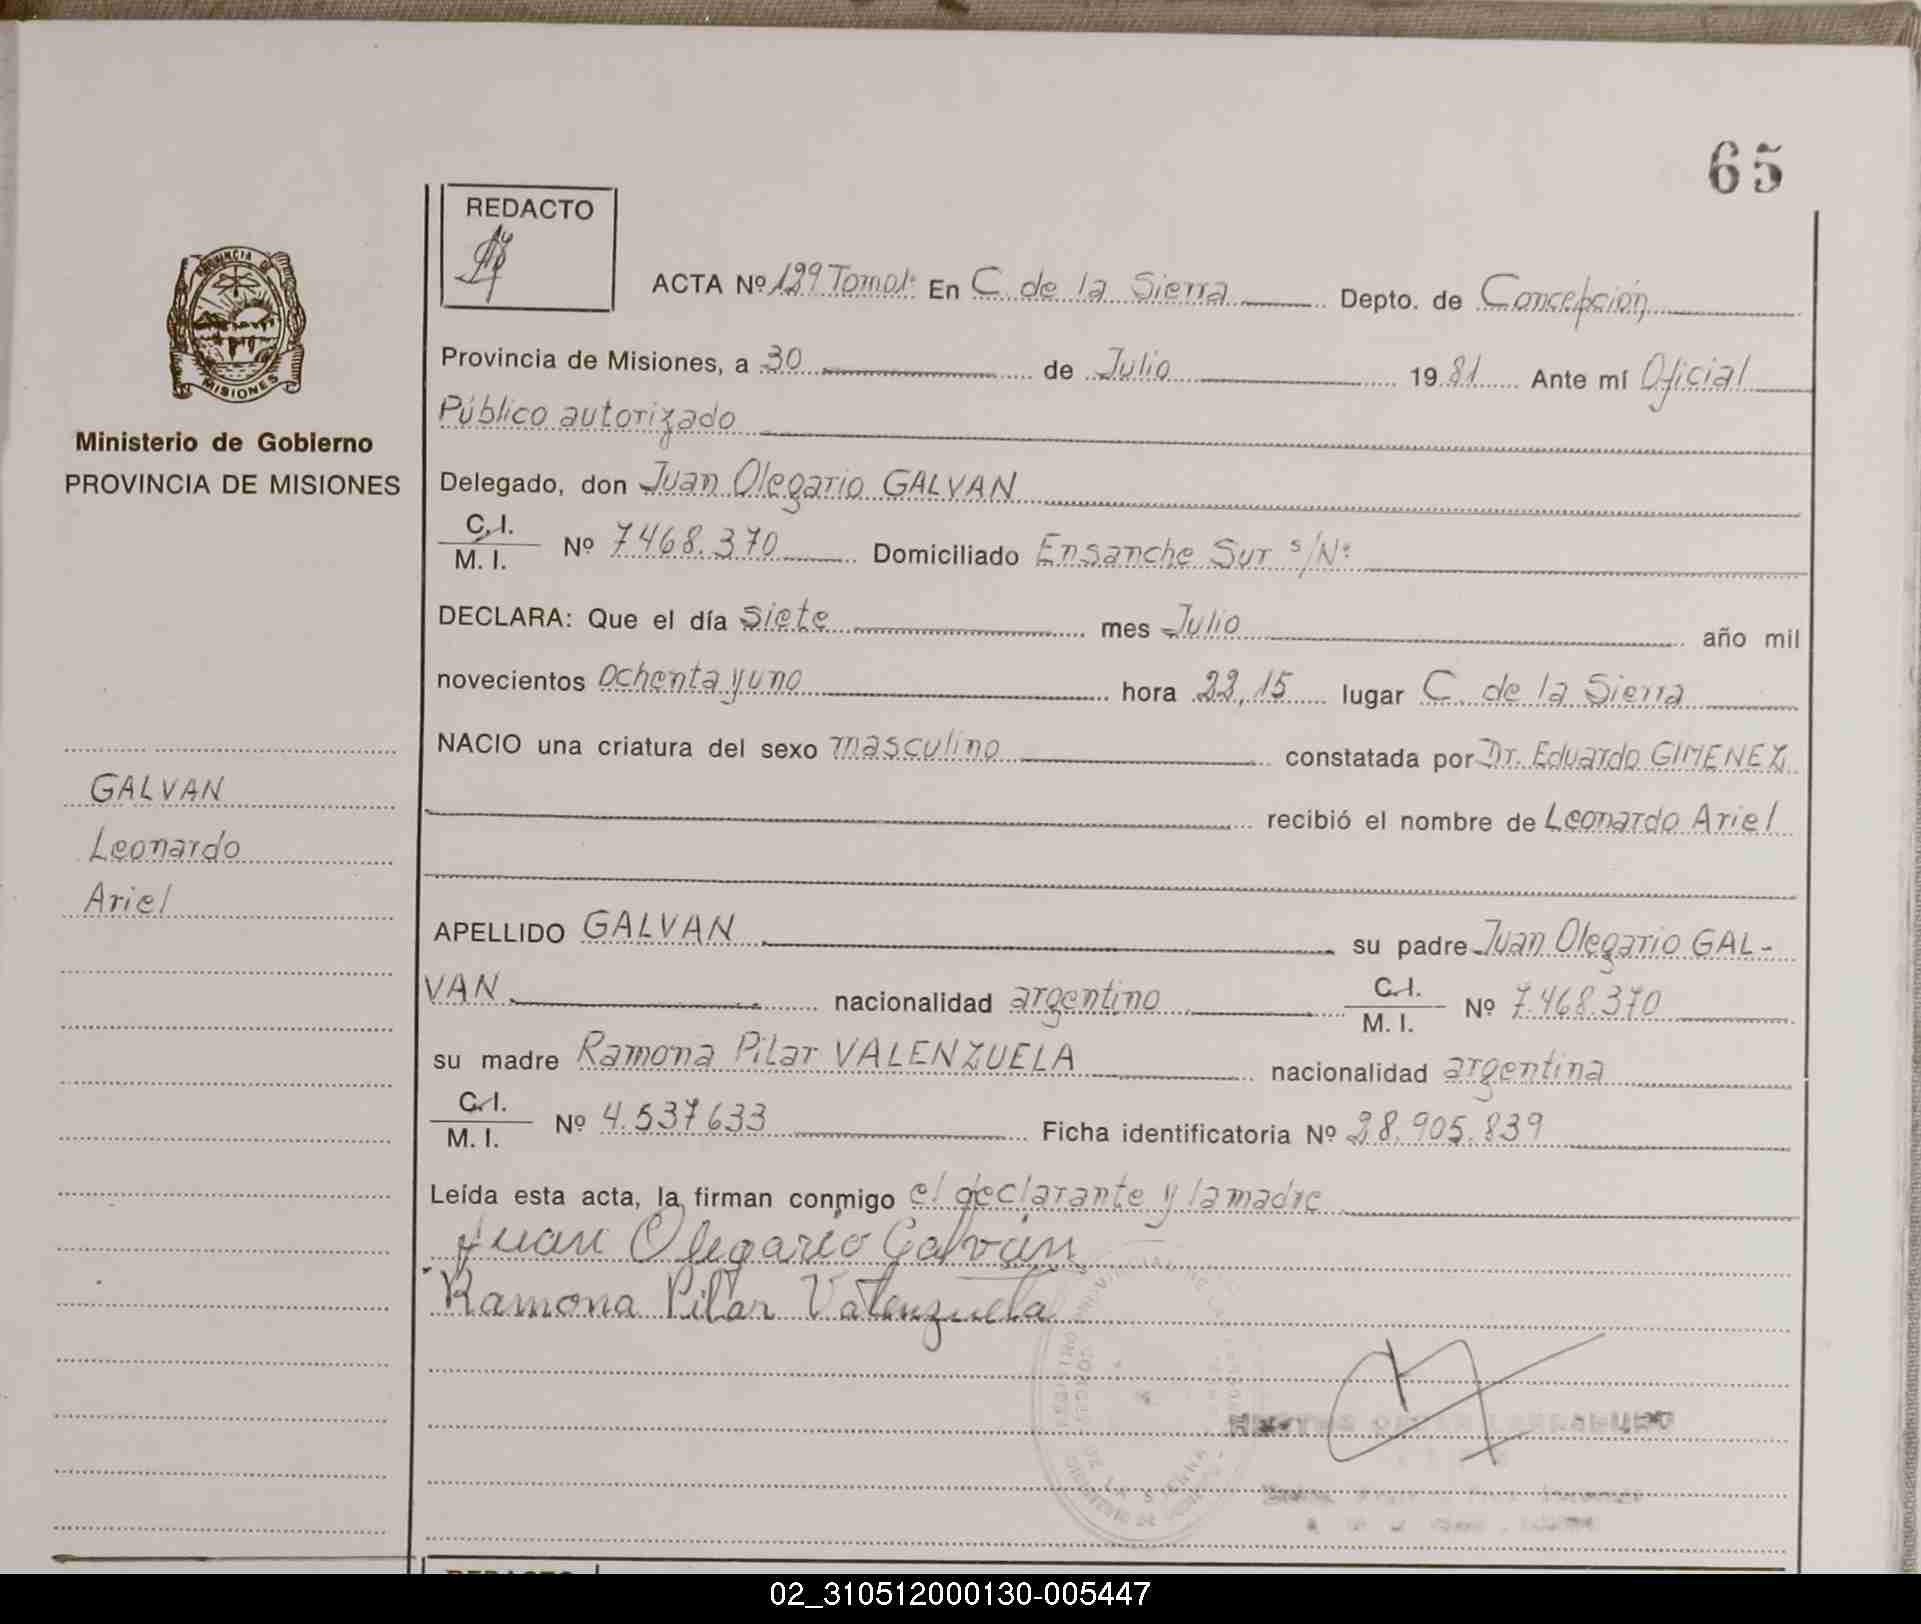 65
REDACTO
PROVINCIA DE
MISIONES
Ministerio de Gobierno
PROVINCIA DE MISIONES
ACTA Nº 129 Tomo I: En C. de la Sierra Depto. de Concepción
Provincia de Misiones, a 30 de Julio 19 81 Ante mí Oficial
Público autorizado
Delegado, don Juan Olegario GALVAN
C.I. / M. I. Nº 7468.370 Domiciliado Ensanche Sur s/Nº
DECLARA: Que el día siete mes Julio año mil
novecientos ochenta y uno hora 22,15 lugar C. de la Sierra
NACIO una criatura del sexo masculino constatada por Dr. Eduardo GIMENEZ
recibió el nombre de Leonardo Ariel
GALVAN
Leonardo
Ariel
APELLIDO GALVAN su padre Juan Olegario GAL-
VAN nacionalidad argentino C.I. / M. I. Nº 7.468.370
su madre Ramona Pilar VALENZUELA nacionalidad argentina
C.I. / M. I. Nº 4.537633 Ficha identificatoria Nº 28.905.839
Leída esta acta, la firman conmigo el declarante y la madre
Juan Olegario Galván
Ramona Pilar Valenzuela
DE LA SIERRA
REDACTO
02_310512000130-005447